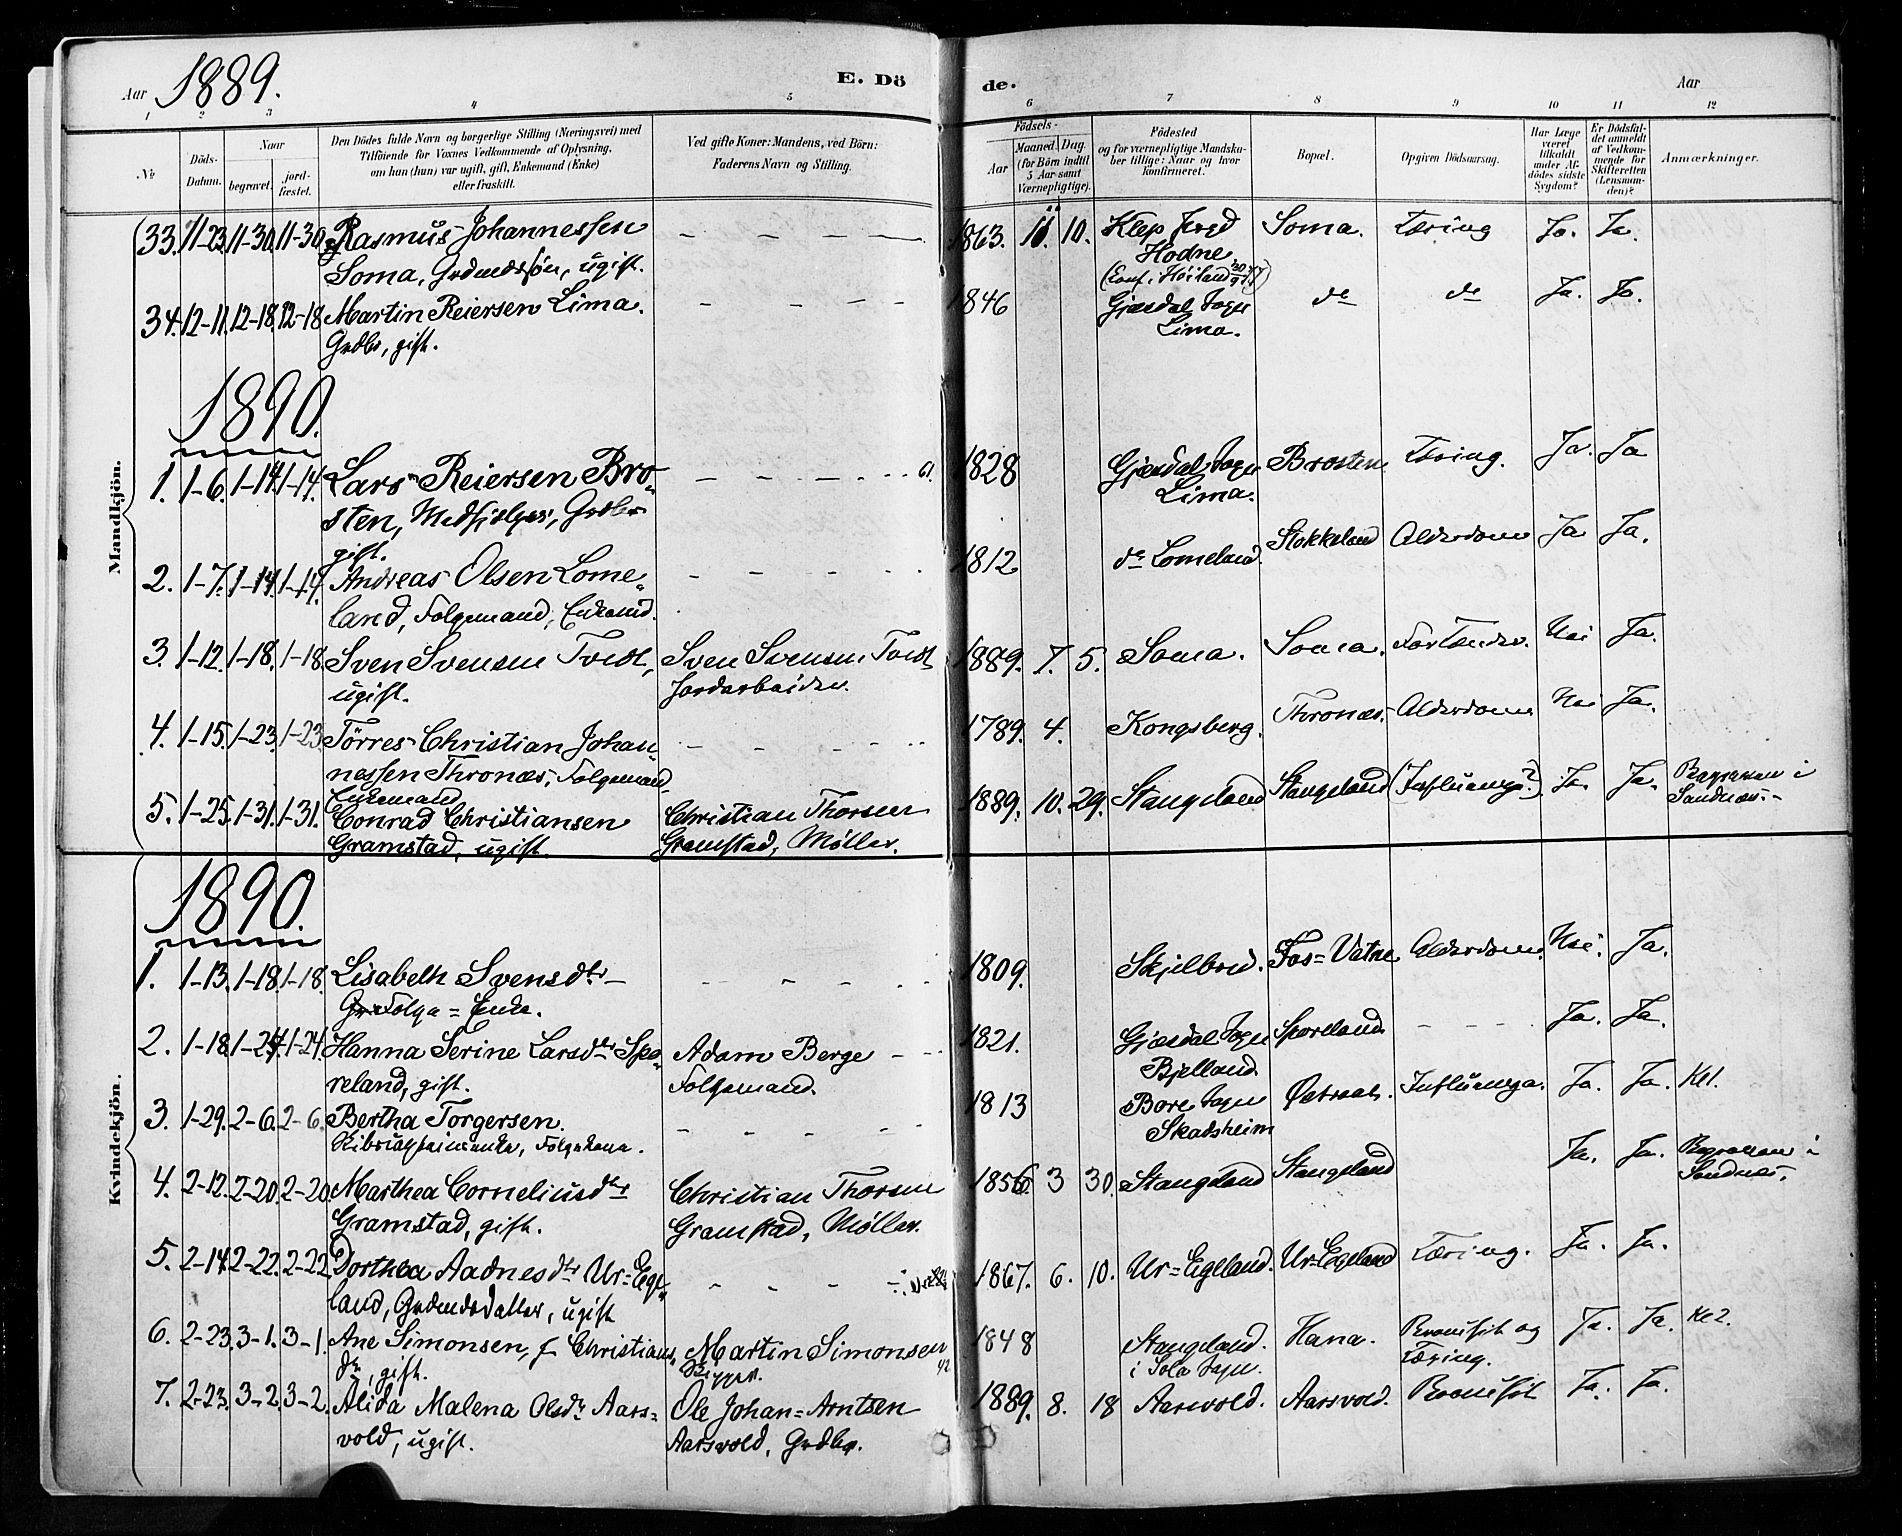 Aar 1889.
E. Dö de.
Aar
1 2 3 4 5 6 7 8 9 10 11 12
№
Döds-Datum.
Naar
begravet.
jord-fæstet.
Den Dödes fulde Navn og borgerlige Stilling (Næringsvei) med
Tilföiende for Voxnes Vedkommende af Oplysning,
om han (hun) var ugift, gift, Enkemand (Enke)
eller fraskilt.
Ved gifte Koner: Mandens, ved Börn:
Faderens Navn og Stilling.
Födsels-
Aar
Maaned Dag
(for Börn indtil
5 Aar samt
Værnepligtige).
Födested
og for værnepligtige Mandskaber tillige: Naar og hvor
konfirmeret.
Bopæl.
Opgiven Dödsaarsag.
Har Læge
været
tilkaldt
under Afdödes sidste
Sygdom?
Er Dödsfaldet anmeldt
af Vedkommende for
Skifteretten
(Lensmanden)?
Anmærkninger.
Mandkjön.
33. 11-23. 11-30. 11-30. Rasmus Johannessen 1863. 11. 10. Klep Sogn Soma. Tæring Ja. Ja.
Soma, Grdmdssøn, ugift. Hodne
(Conf. i Høiland
34. 12-11. 12-18. 12-18 Martin Reiersen Lima. 1846 Gjesdal Sogn do do Ja. Ja.
Grdbr, gift. Lima.
1890.
1. 1-6. 1-14. 1-14. Lars Reiersen Bro- 61. 1828 Gjesdal Sogn Brosten Tæring. Ja. Ja
sten, Medhjælper, Grdbr Lima.
gift.
2. 1-7. 1-14. 1-14. Andreas Olsen Lome- 1812 do Lomeland. Stokkeland Alderdom Ja Ja.
land, Folgemand, Enkemd.
3. 1-12. 1-18. 1-18 Sven Svensen Tvedt, Sven Svensen Tvedt 1889. 7. 5. Soma. Soma. Nei Ja.
ugift. Jordarbeider.
4. 1-15. 1-23. 1-23. Törres Christian Johan- 1789. 4. Kongsberg. Thronæs. Alderdom Nei Ja.
nessen Thronæs, Folgemand,
Enkemand
5. 1-25. 1-31. 1-31. Conrad Christiansen Christian Thorsen 1889. 10. 29. Stangeland Stangeland (Influenza?) Ja. Ja. Begraven i
Gramstad, ugift. Gramstad, Møller. Sandnes.
Kvindekjön.
1890.
1. 1-13. 1-18. 1-18. Lisabeth Svensdtr 1809. Skjelbred. Fos=Vatne Alderdom. Nei Ja.
Folge=Enke.
2. 1-18. 1-24. 1-24. Hanna Serine Larsdtr Spo- Adam Berge 1821. Gjesdal Sogn Sporeland Ja. Ja.
reland, gift. Folgemand. Bjelland.
3. 1-29. 2-6. 2-6. Bertha Torgersen. 1813 Bore Sogn Influenza. Ja. Ja. Kl.
Folgekone. Skadsheim
4. 2-12. 2-20. 2-20. Marthea Corneliusdtr Christian Thorsen 1856 3 30. Stangeland Stangeland Ja. Ja. Begraven i
Gramstad, gift. Gramstad, Møller. Sandnes.
5. 2-14. 2-22. 2-22. Dorthea Aadnesdtr Ur=Ege- 1867. 6. 10. Ur=Egeland. Ur=Egeland Tæring. Ja. Ja.
land, Grdmdsdatter, ugift
6. 2-23. 3-1. 3-1. Ane Simonsen, f Christians- Martin Simonsen 1848 Stangeland. Hana. Bronsit og Ja. Ja. Kl 2.
dtr, gift. i Sola Sogn. Tæring.
7. 2-23. 3-2. 3-2. Alida Malena Olsdtr Aars- Ole Johan=Arntsen 1889. 8. 18 Aarsvold. Aarsvold. Bronsit Ja. Ja.
vold, ugift. Aarsvold, Grdbr.